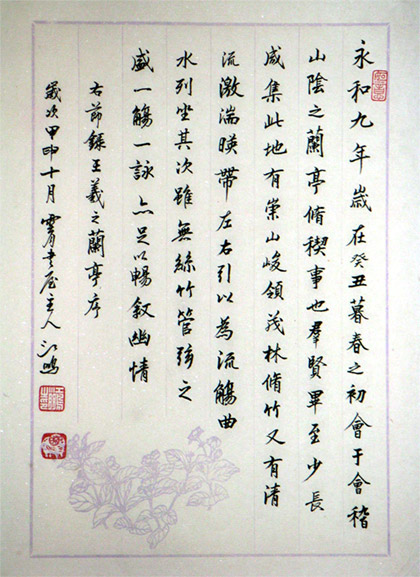 永和九年歲在癸丑暮春之初會于會稽
山陰之蘭亭脩稧事也羣賢畢至少長
咸集此地有崇山峻領茂林脩竹又有清
流激湍暎帶左右引以為流觴曲
水列坐其次雖無絲竹管弦之
盛一觴一詠亦足以暢敘幽情
右節錄王羲之蘭亭序
歲次甲申十月書屋主人